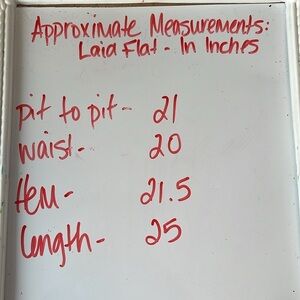 Approximate Measurements:
Laid Flat - In Inches
pit to pit - 21
waist - 20
Hem - 21.5
length - 25